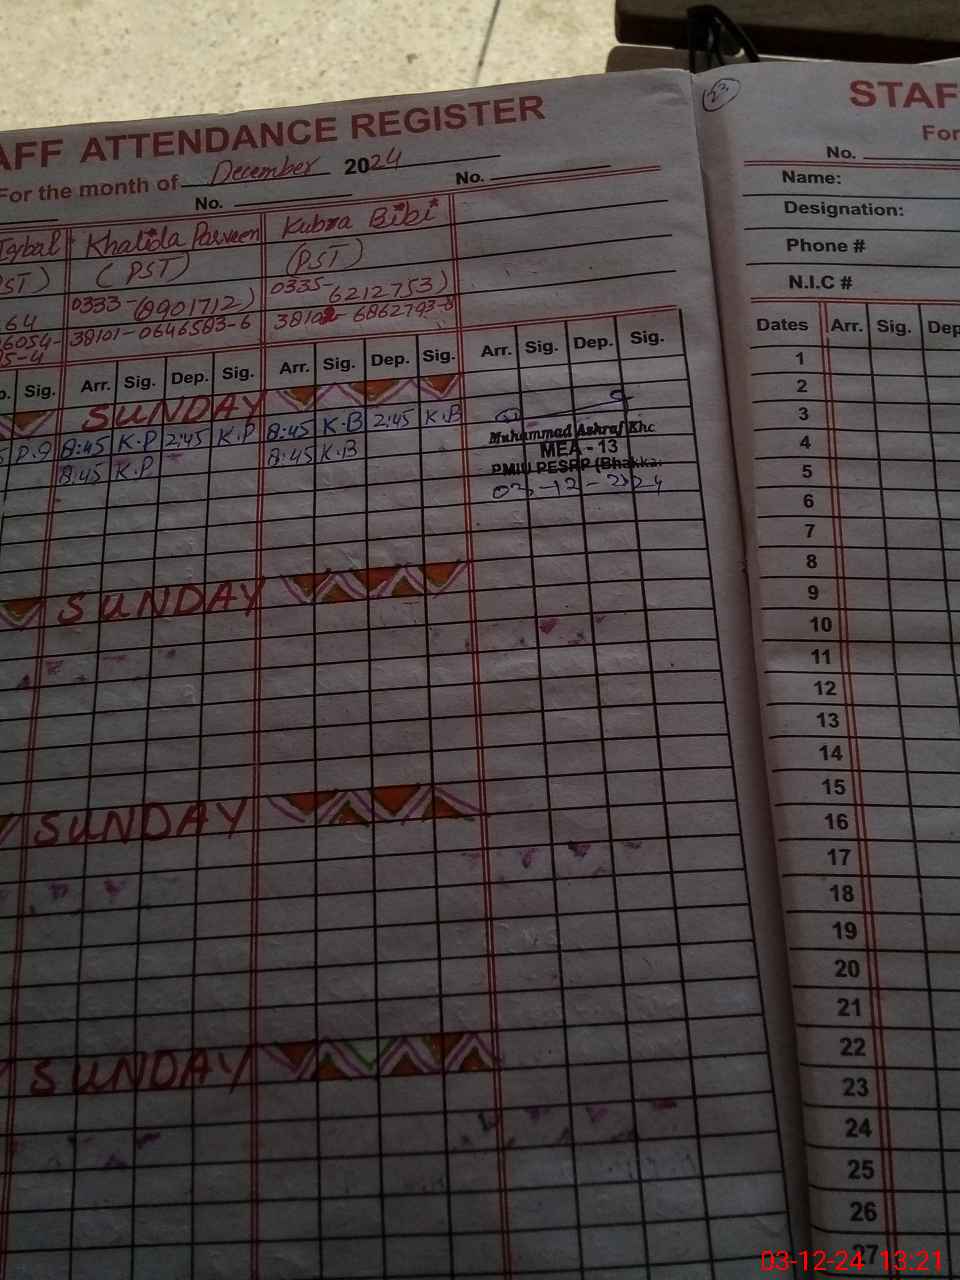 AFF ATTENDANCE REGISTER
For the month of December 2024
No. No.
Iqbal Khalida Parveen Kubra Bibi
PST) (PST) (PST)
0333-(8901712) 0335-6212753)
64
6054- 38101-0646583-6 38102-6862793-8
5-4
Sig. Arr. Sig. Dep. Sig. Arr. Sig. Dep. Sig. Arr. Sig. Dep. Sig.
SUNDAY
P.9 8:45 K.P 2:45 K.P 8:45 K.B 2:45 K.B
8:45 K.P 8:45 K.B
Muhammad Ashraf Khc
MEA - 13
PMIU PESRP (Bhakka
03-12-2024
SUNDAY
SUNDAY
SUNDAY
23
STAF
For
No.
Name:
Designation:
Phone #
N.I.C #
Dates Arr. Sig. Dep
1
2
3
4
5
6
7
8
9
10
11
12
13
14
15
16
17
18
19
20
21
22
23
24
25
26
27
03-12-24 13:21